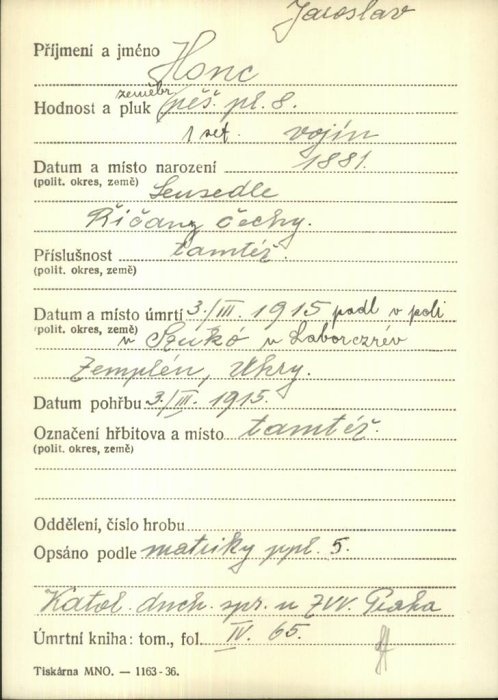 Jaroslav
Příjmení a jméno Honc
zeměbr.
Hodnost a pluk pěš. pl. 8.
1 set. vojín
Datum a místo narození 1881.
(polit. okres, země) Sensedle
Říčany Čechy.
Příslušnost tamtéž.
(polit. okres, země)
Datum a místo úmrtí 3./III. 1915 padl v poli
(polit. okres, země) v Szukó u Laborczrév
Zemplén, Uhry.
Datum pohřbu 3./III. 1915.
Označení hřbitova a místo tamtéž.
(polit. okres, země)
Oddělení, číslo hrobu
Opsáno podle matriky ppl. 5.
Katol. duch. spr. u ZVV. Praha
Úmrtní kniha: tom., fol. IV. 65.
Tiskárna MNO. — 1163-36.